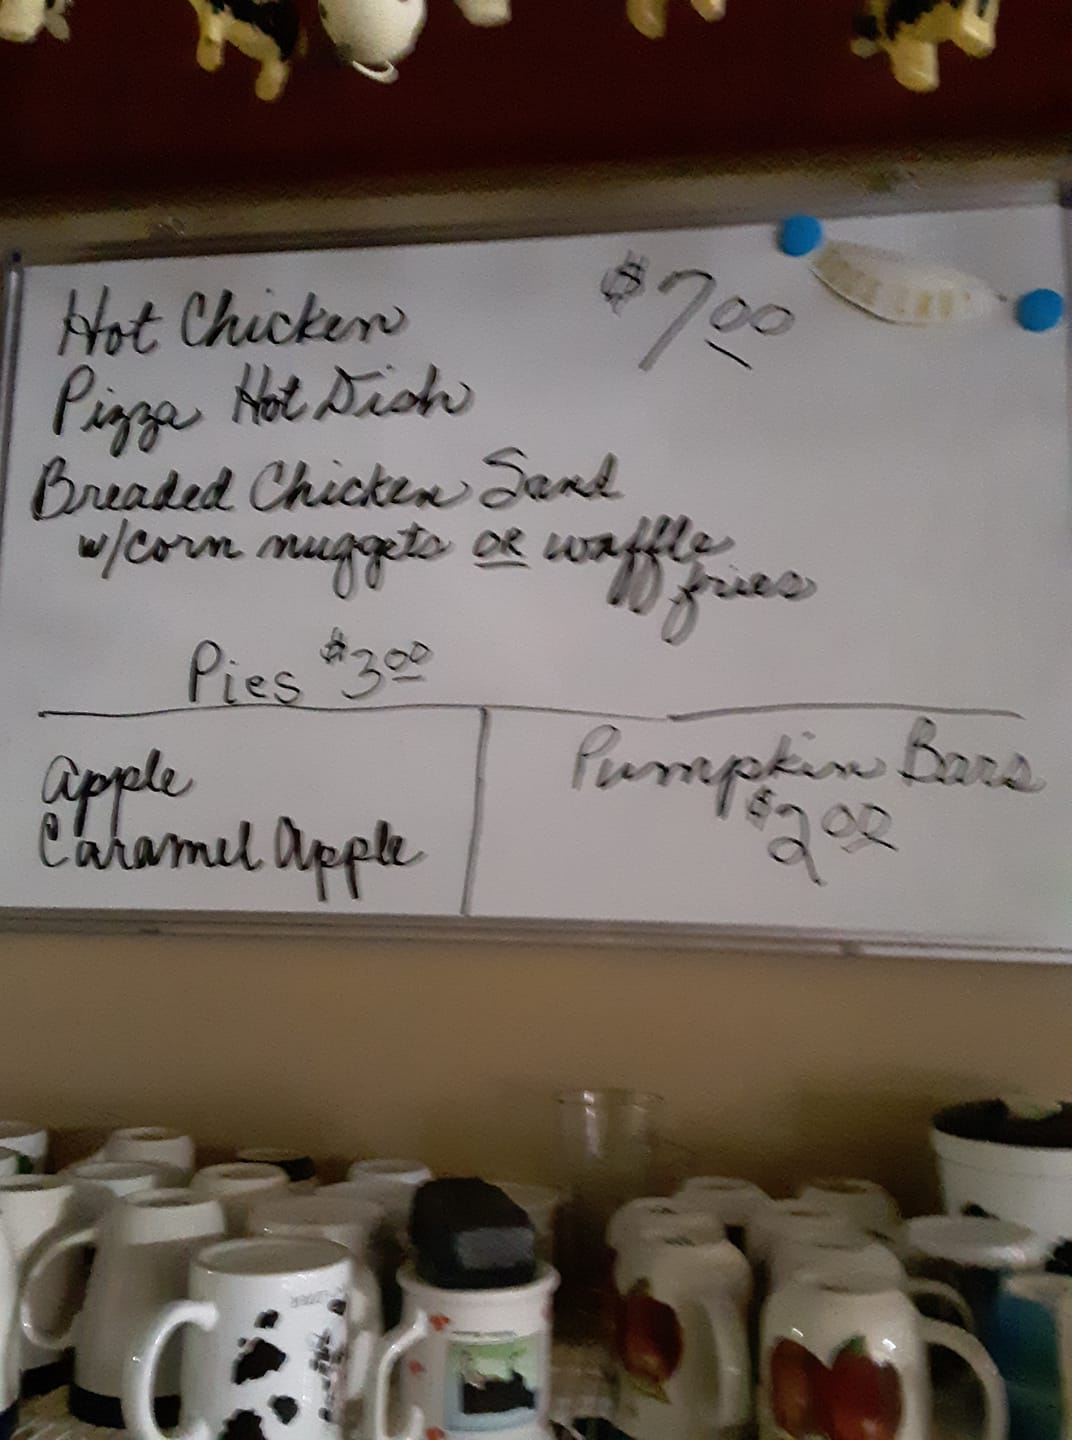 Hot Chicken $7.00
Pizza Hot Dish
Breaded Chicken Sand
w/corn nuggets OR waffle
fries
Pies $3.00
Apple
Caramel Apple
Pumpkin Bars
$2.00